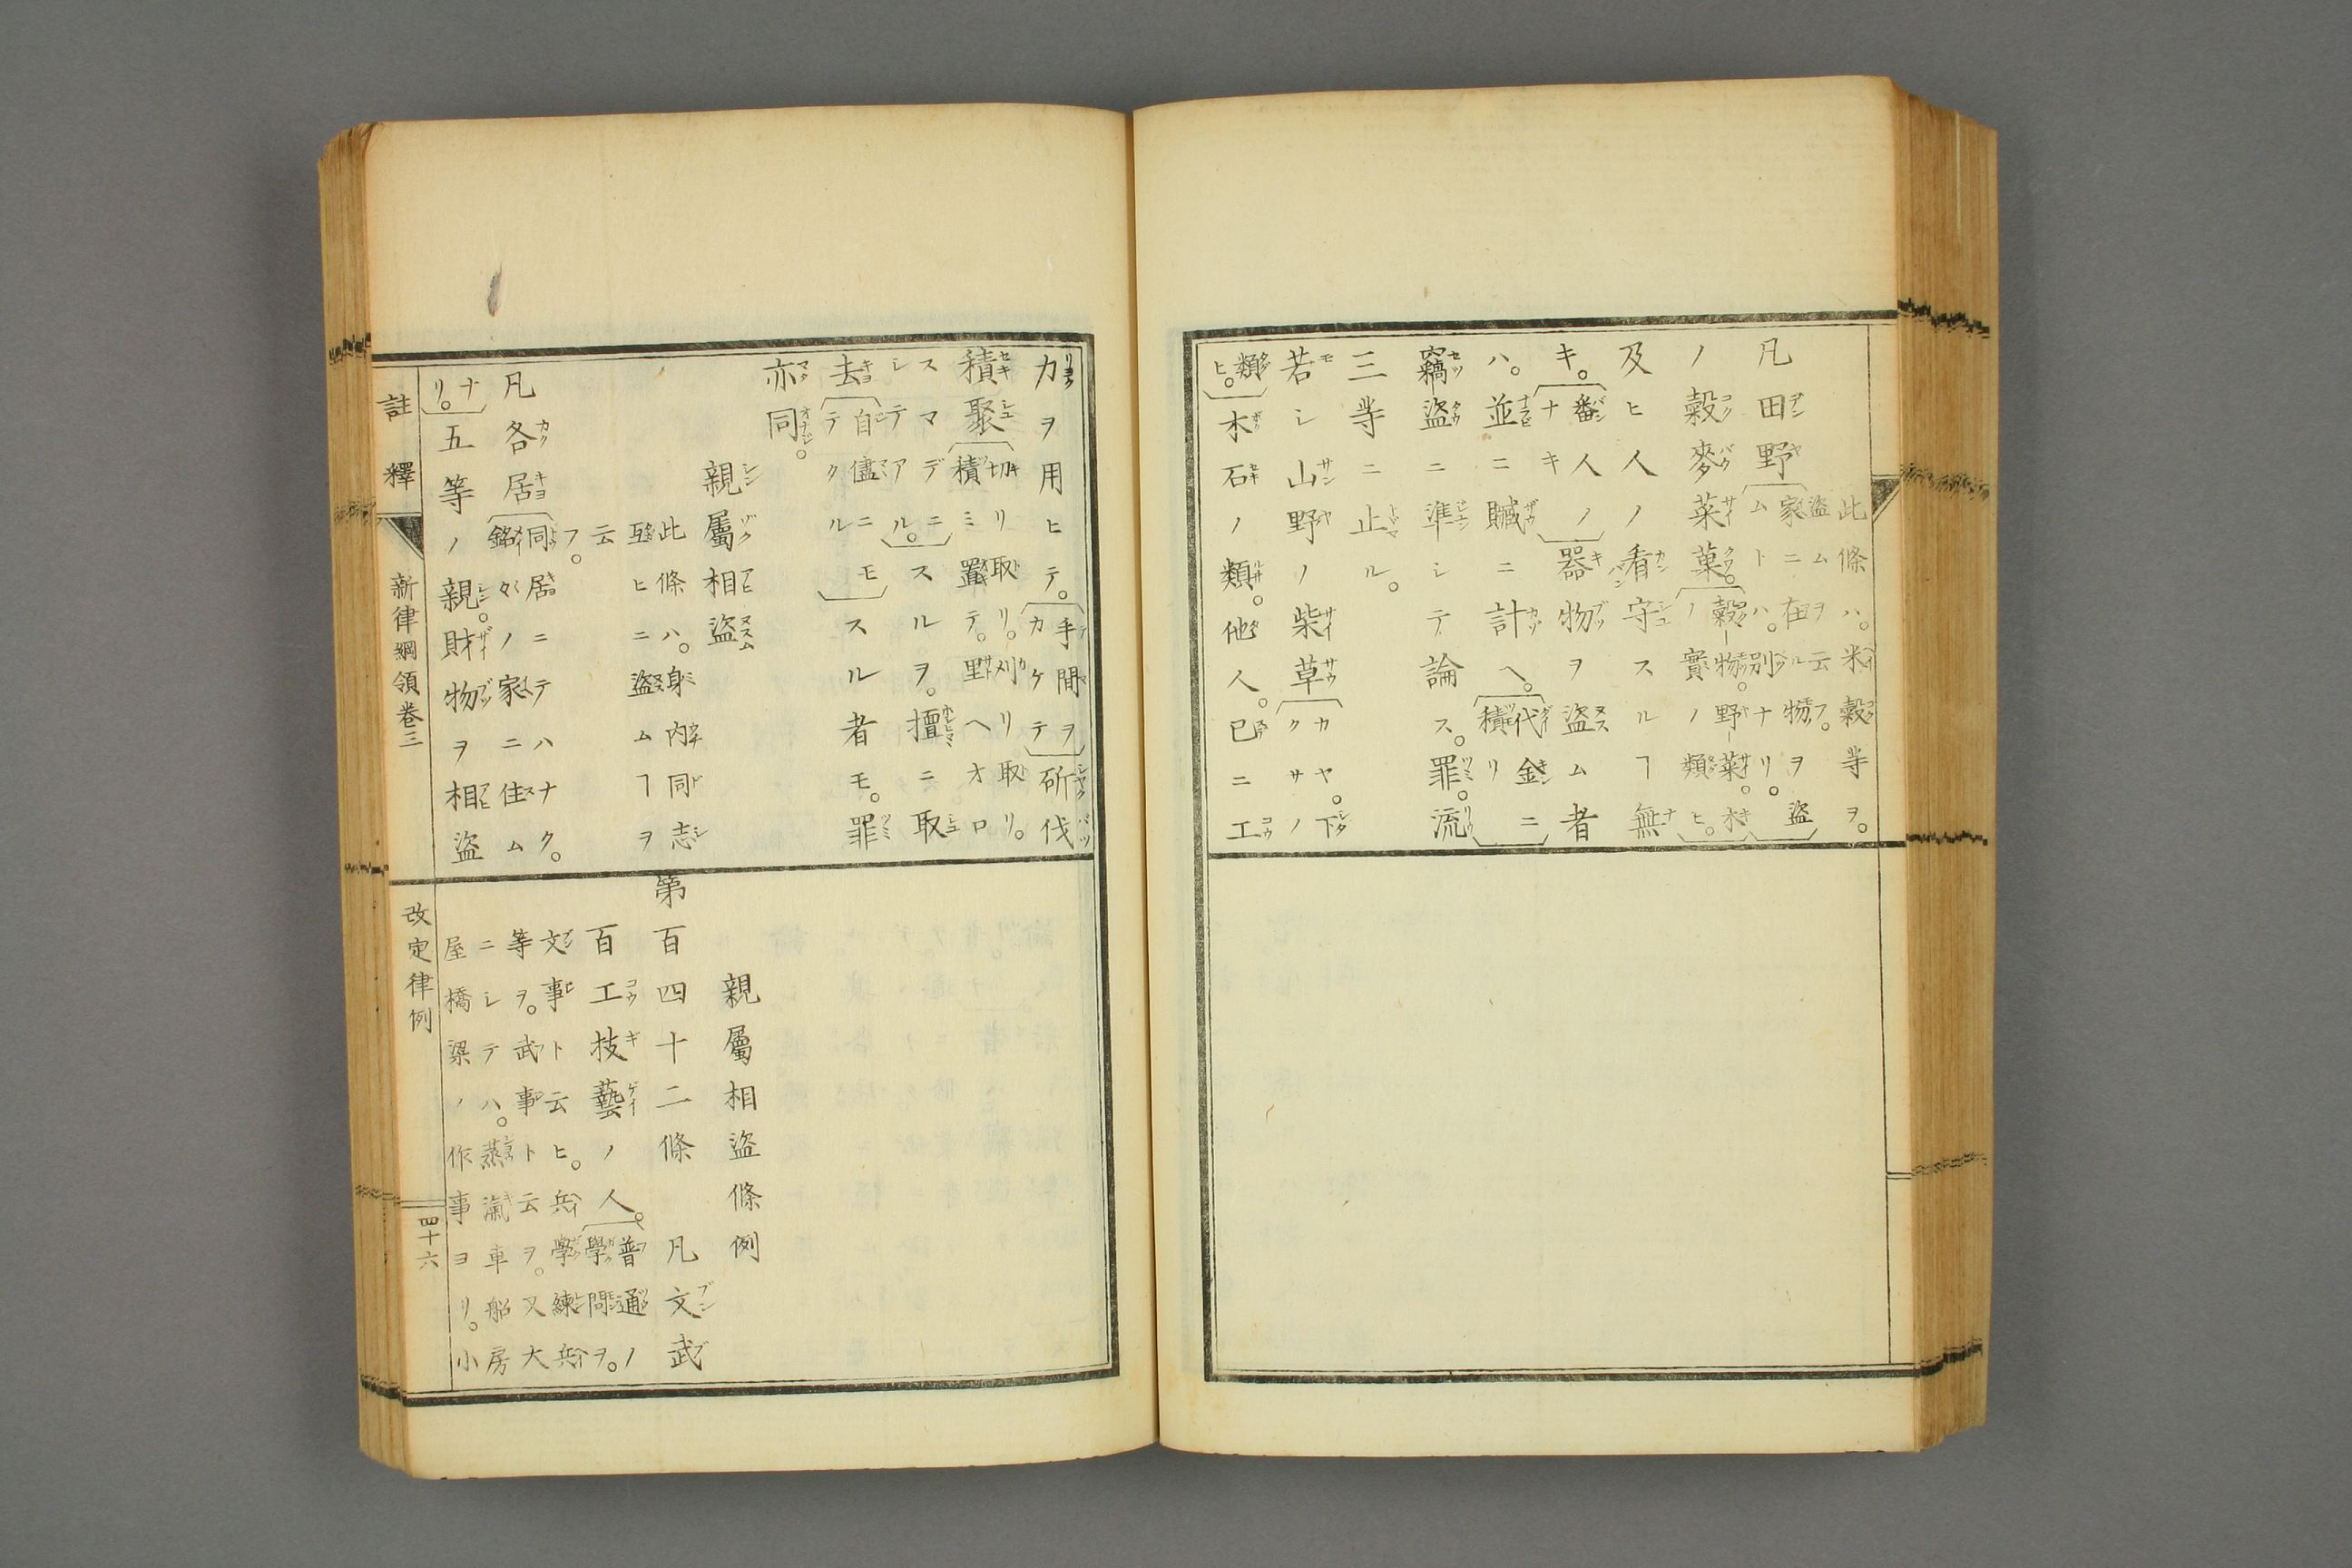 此條ハ。米穀等ヲ。
盜ムヲ云フ。
凡田野
家ニ在ル物ヲ盜
ムトハ。別ナリ。
ノ穀麥菜菓。
穀物。野菜。木
ノ實ノ類ヒ。
及ヒ人ノ看守スルヿ無
キ。
番人ノ
ナキ
器物ヲ盜ム者
ハ。並ニ贓ニ計ヘ。
代金ニ
積リ
竊盜ニ準シテ論ス。罪。流
三等ニ止ル。
若シ山野ノ柴草
カヤ。下
クサノ
類ヒ。
木石ノ類。他人。已ニ工
力ヲ用ヒテ。
手間ヲ
カケテ
斫伐
積聚
切リ取リ。刈リ取リ。
積ミ置テ。野ヘオロ
スマデニ
シテアル。
スルヲ。擅ニ取
去
自儘ニモ
テクル
スル者モ。罪
亦同。
親屬相盜
此條ハ。身內同志
互ヒニ盜ムヿヲ
云フ。
凡各居
同居ニテハナク。
銘々ノ家ニ住ム
ナ
リ。
五等ノ親。財物ヲ相盜
親屬相盜條例
第百四十二條 凡文武
百工技藝ノ人。
普通ノ
學問ヲ。
文事ト云ヒ。兵學練兵
等ヲ。武事ト云ヲ。又大
ニシテハ。蒸滊車船房
屋橋梁ノ作事ヨリ。小
註釋
新律綱領卷三
改定律例
四十六